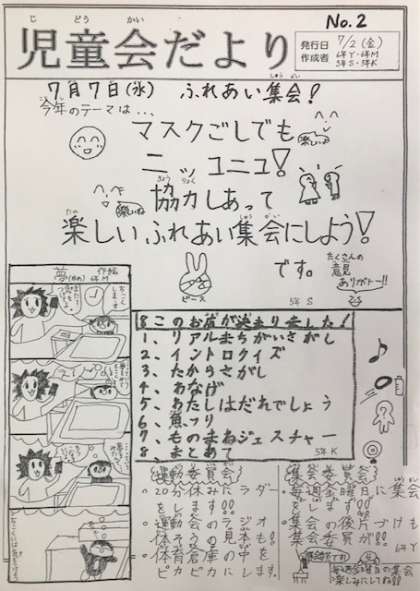 じどうかい
児童会だより
No.2
発行日 7/2(金)
作成者 6年Y・6年M
5年S・5年K
7月7日(水) ふれあい集会!
今年のテーマは...
マスクごしでも
ニッコニコ!
協力しあって
楽しいふれあい集会にしよう!
です。
たくさんの
意見
ありがとー!!
ピース
5年 S
夢(ゆめ) 作絵 6年M
8このお店が決まりました!
1、リアルまちがいさがし
2、イントロクイズ
3、たからさがし
4、わなげ
5、わたしはだれでしょう
6、魚つり
7、ものまねジェスチャー
8、まとあて
5年K
運動委員会
・20分休みにラダー
をします!!
・運動会のラジオ
体そうの見本も!
・体育倉庫の中を
ピカピカにします。
集会委員会
・毎週金曜日に集会
をします!!
・集会の後片づけも
集会委員が!!
6年Y
毎週金曜日の集会
楽しみにしいてね!!